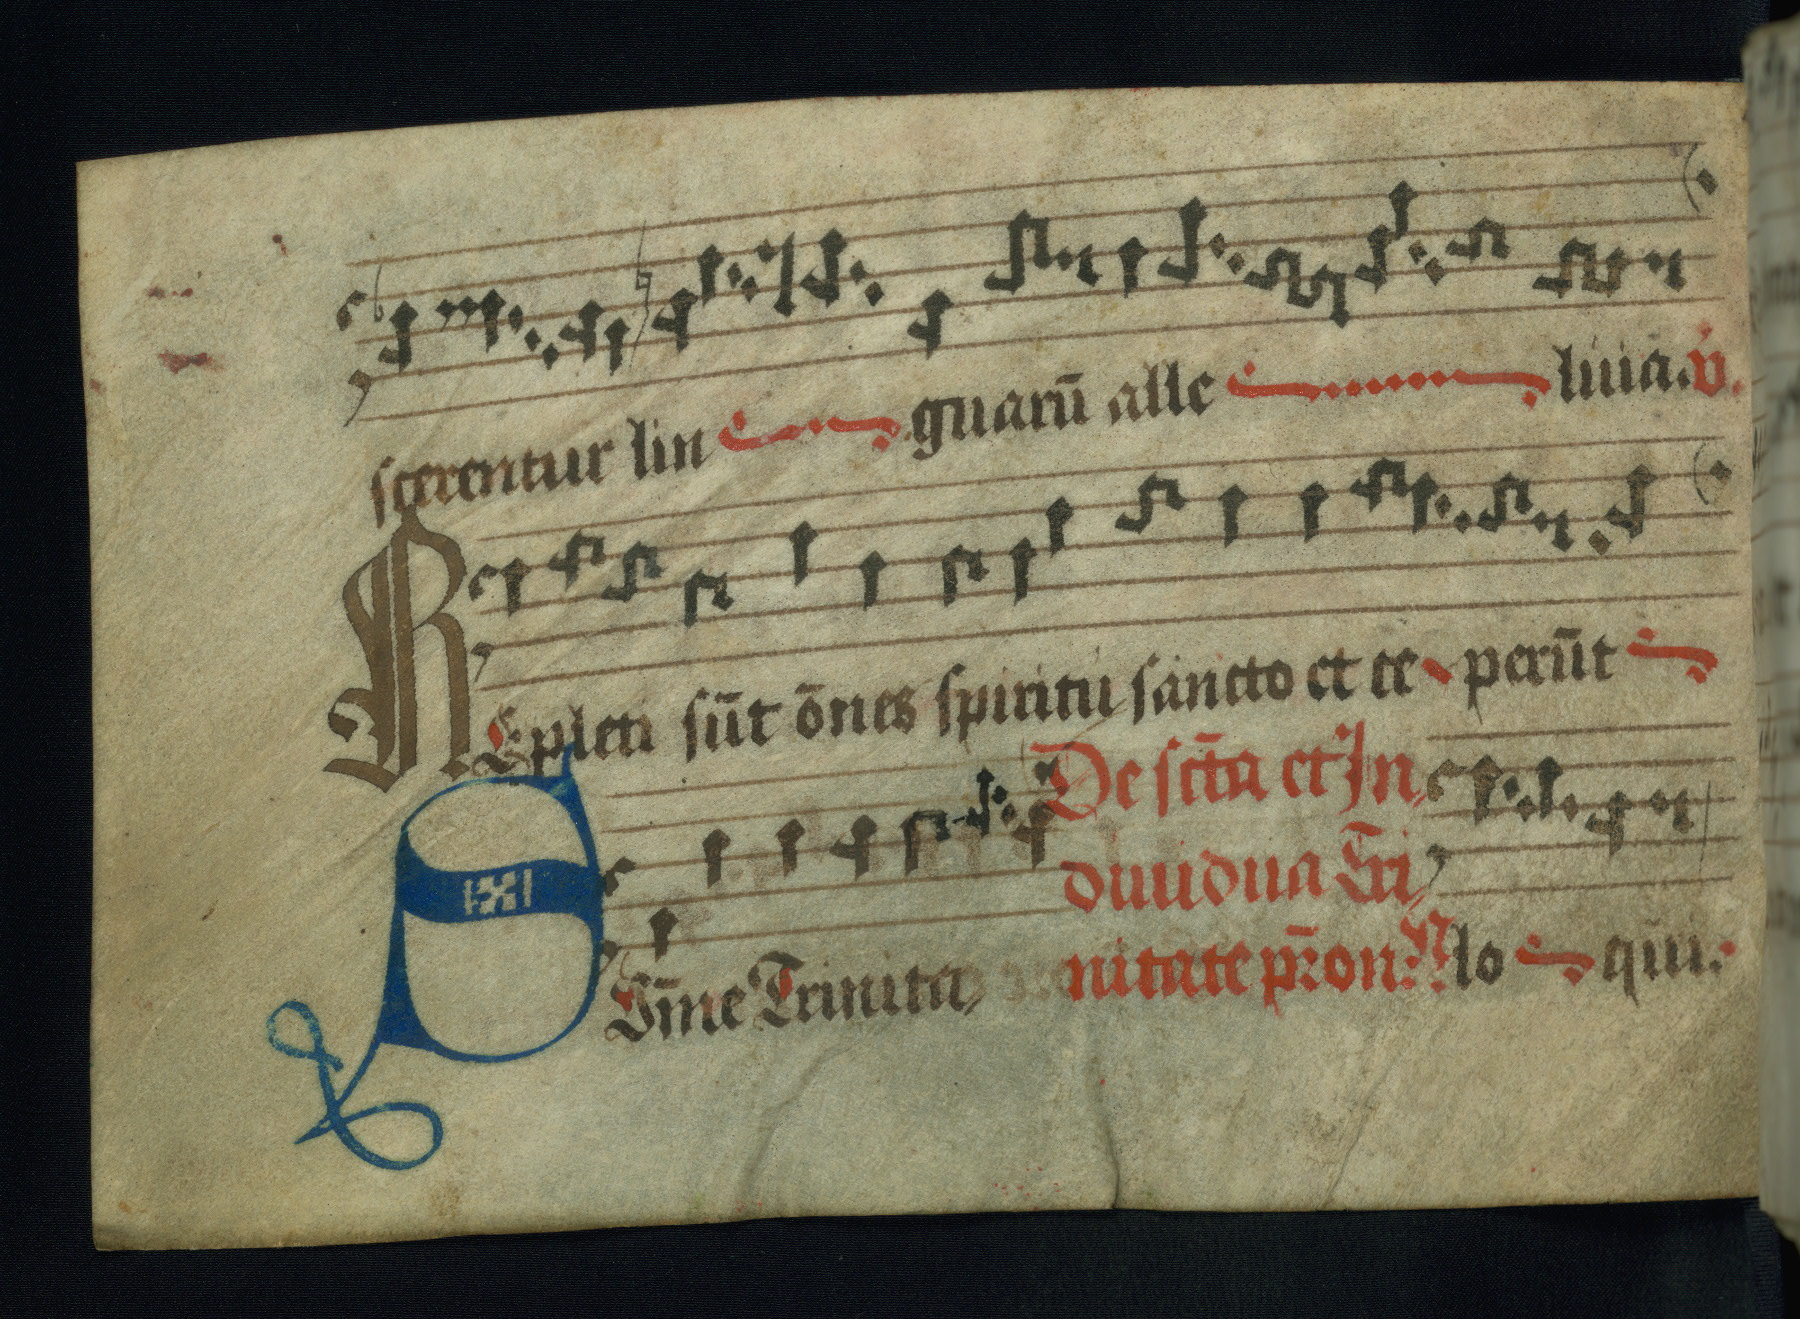 scerentur lin guarū alle luia. v̄.
REpleti sūt ōnes spiritu sancto et ce perūt
De sctā et In
diuidua Tri
nitate pr̄on: R̷ lo qui.
SVm̄e Trinita